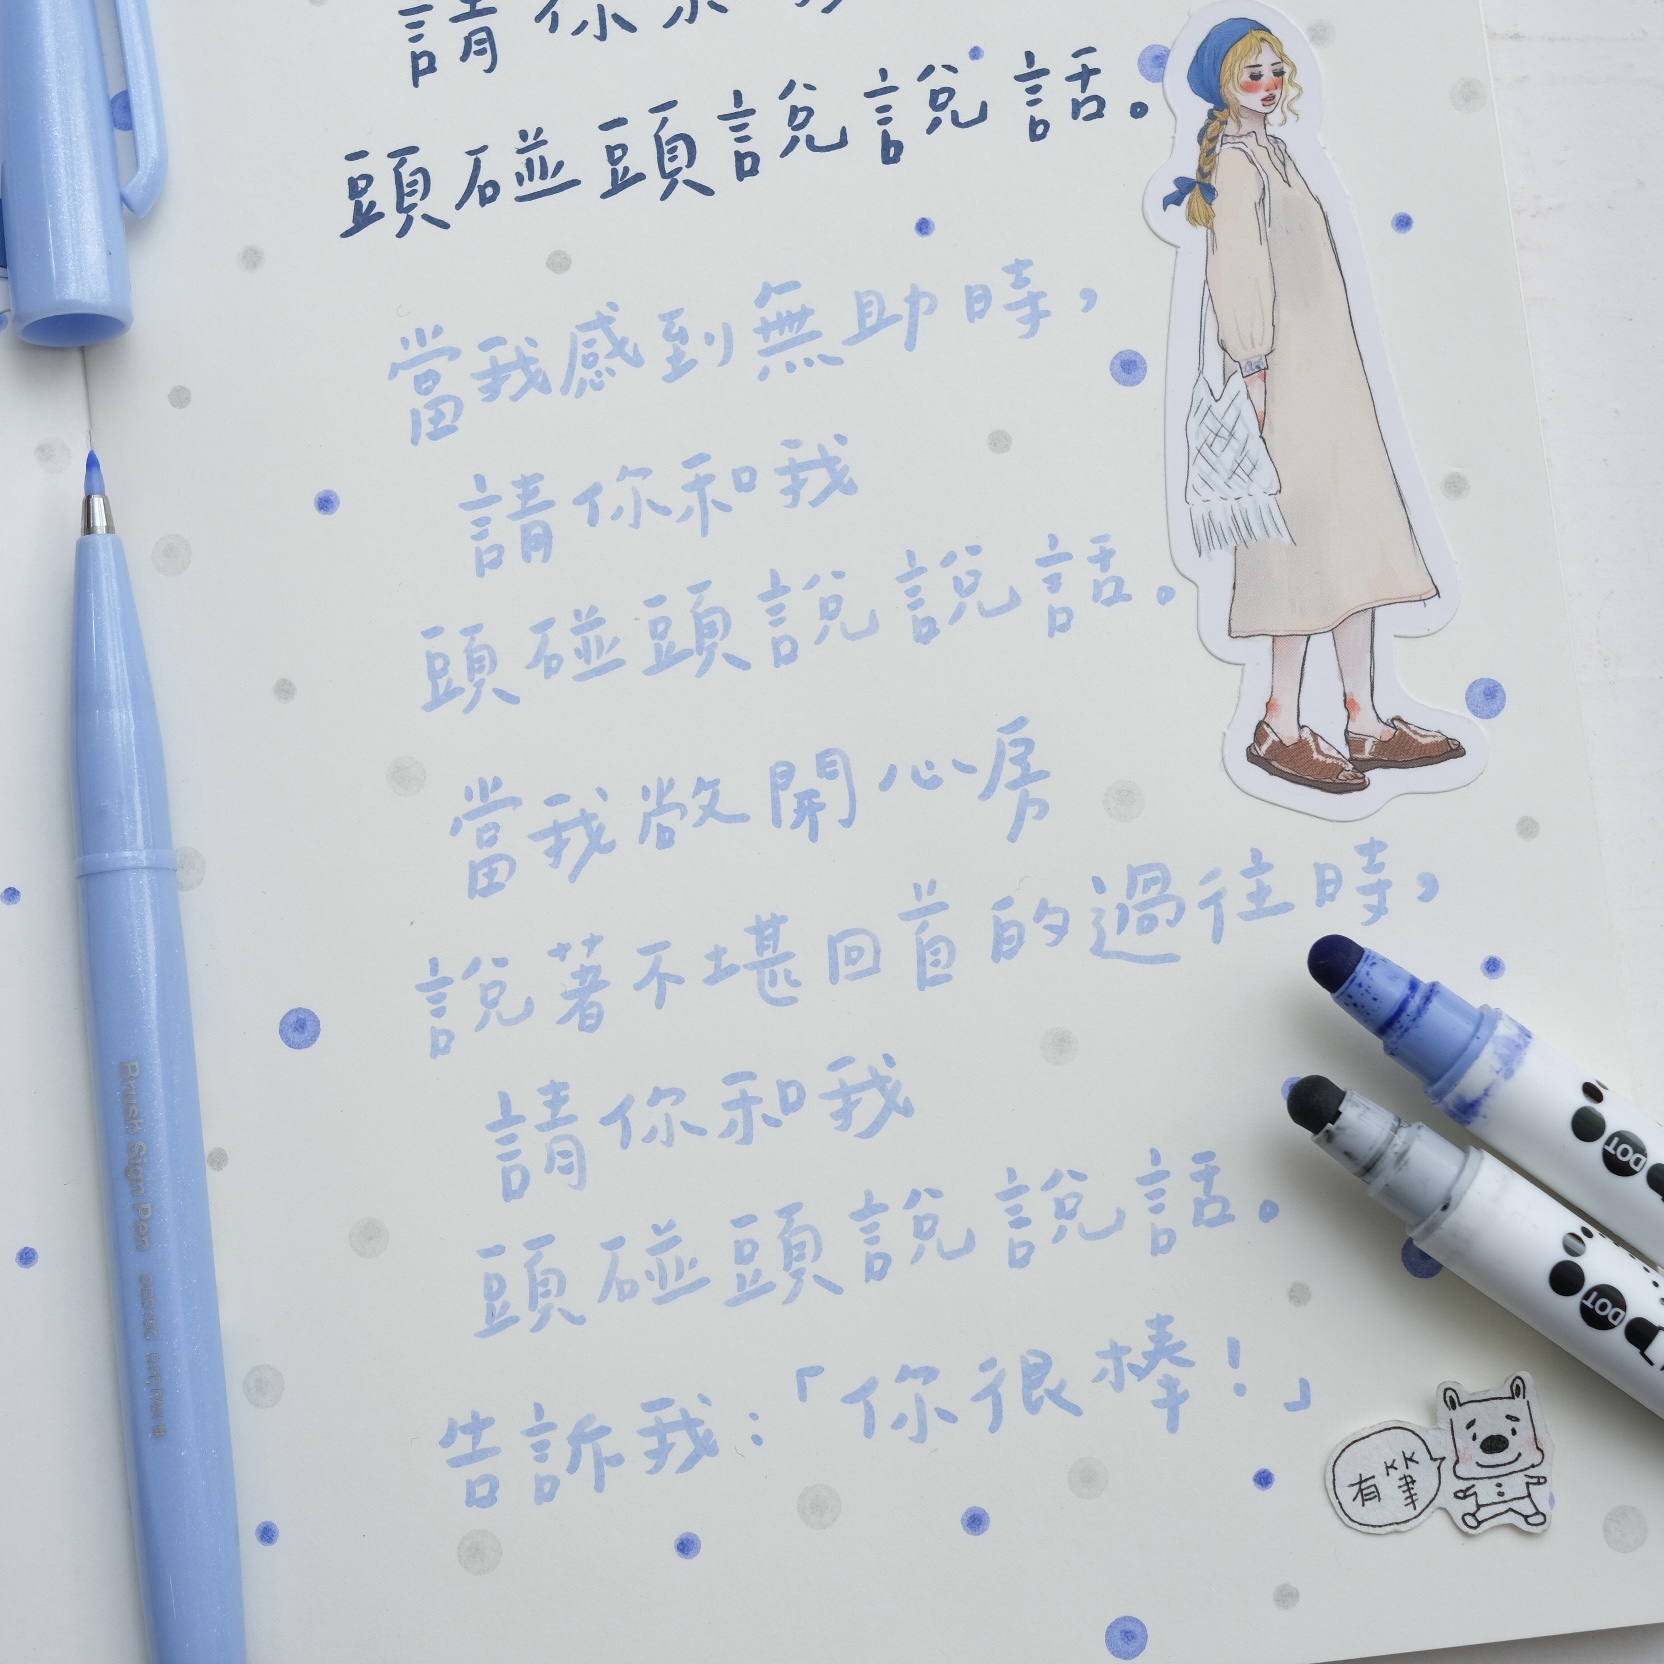 請你和我
頭碰頭說說話。
當我感到無助時，
請你和我
頭碰頭說說話。
當我敞開心房
說著不堪回首的過往時，
請你和我
頭碰頭說說話。
告訴我：「你很棒！」
有筆
Brush Sign Pen
DOT
DOT